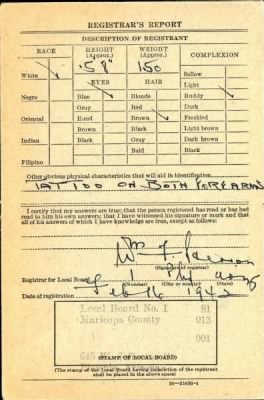 REGISTRAR'S REPORT
DESCRIPTION OF REGISTRANT
RACE HEIGHT (Approx.) WEIGHT (Approx.) COMPLEXION
5'8" 150
White Sallow
EYES HAIR Light
Ruddy
Negro Blue Blonde Dark
Gray Red Freckled
Oriental Hazel Brown Light brown
Brown Black Dark brown
Indian Black Gray Black
Bald
Filipino
Other obvious physical characteristics that will aid in identification
TATTOO ON BOTH FOREARMS
I certify that my answers are true; that the person registered has read or has had
read to him his own answers; that I have witnessed his signature or mark and that
all of his answers of which I have knowledge are true, except as follows:
Wm. F.
(Signature of registrar)
Registrar for Local Board 1
(Number) (City or county) (State)
Date of registration Feb 16 1942
Local Board No. 1 81
Maricopa County 013
001
(STAMP OF LOCAL BOARD)
(The stamp of the Local Board having jurisdiction of the registrant
shall be placed in the above space)
16—21630-1